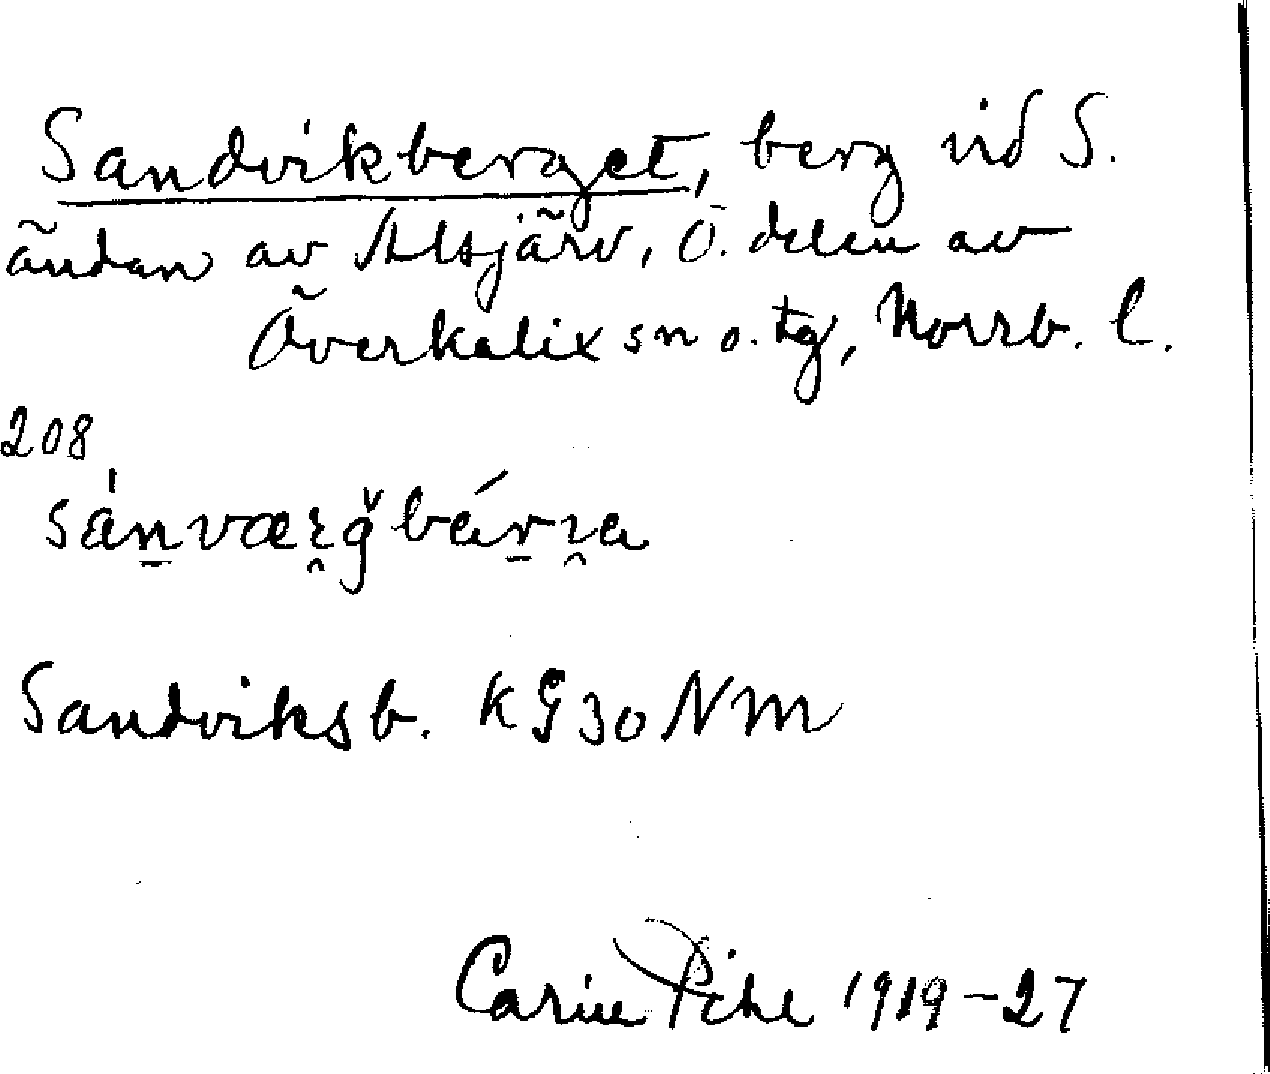 Sandvikberget, berg vid S.
ändan av Alsjärv, Ö. delen av
Överkalix sn o. tg, Norrb. l.
208
Sandviksb. KG 30 NM
Carin Pihl 1919-27